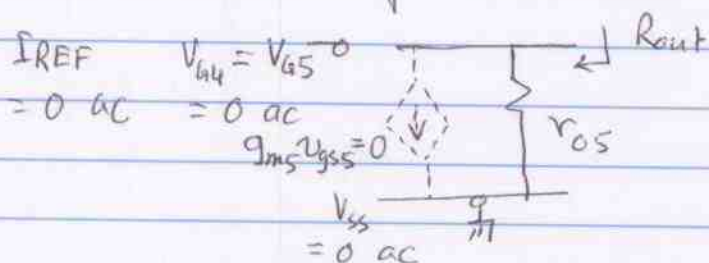 IREF VG4 = VG5 Rout
= 0 ac = 0 ac
gm5 vgs5 = 0 ro5
Vss
= 0 ac